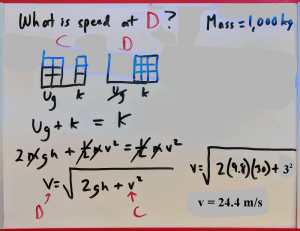 What is speed at D?
Mass = 1,000 kg
C D
Ug k Ug k
Ug + k = k
2 mgh + ½ mv² = ½ mv²
v = √2gh + v²
D C
v = √2(9.8)(30) + 3²
v = 24.4 m/s